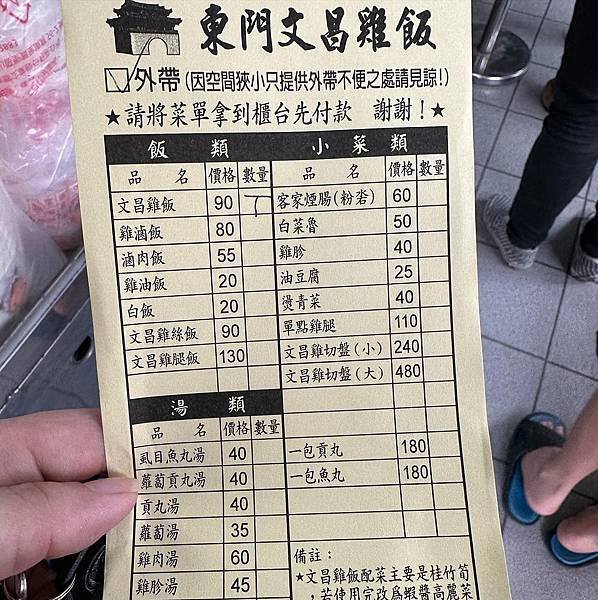 東門文昌雞飯
外帶(因空間狹小只提供外帶不便之處請見諒!)
★請將菜單拿到櫃台先付款 謝謝!★
飯類
品名 價格 數量
文昌雞飯 90
雞滷飯 80
滷肉飯 55
雞油飯 20
白飯 20
文昌雞絲飯 90
文昌雞腿飯 130
湯類
品名 價格 數量
虱目魚丸湯 40
蘿蔔貢丸湯 40
貢丸湯 40
蘿蔔湯 35
雞肉湯 60
雞胗湯 45
小菜類
品名 價格 數量
客家煙腸(粉沓) 60
白菜魯 50
雞胗 40
油豆腐 25
燙青菜 40
單點雞腿 110
文昌雞切盤(小) 240
文昌雞切盤(大) 480
一包貢丸 180
一包魚丸 180
備註:
★文昌雞飯配菜主要是桂竹筍
,若使用完改為蝦醬高麗菜